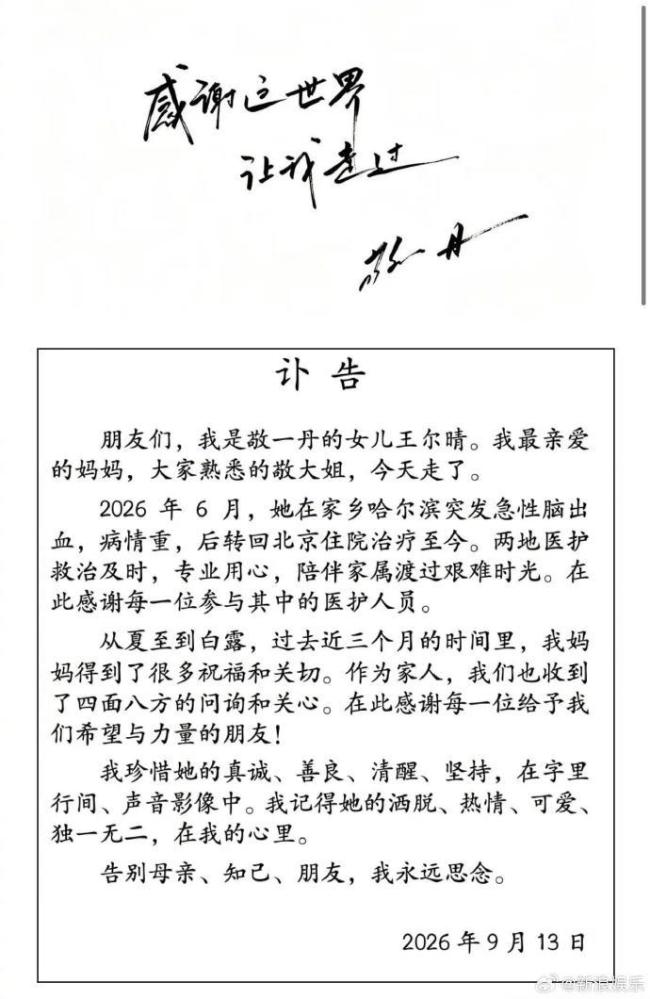 感谢这世界
让我走过
敬一丹
讣 告
朋友们，我是敬一丹的女儿王尔晴。我最亲爱
的妈妈，大家熟悉的敬大姐，今天走了。
2026 年 6 月，她在家乡哈尔滨突发急性脑出
血，病情重，后转回北京住院治疗至今。两地医护
救治及时，专业用心，陪伴家属渡过艰难时光。在
此感谢每一位参与其中的医护人员。
从夏至到白露，过去近三个月的时间里，我妈
妈得到了很多祝福和关切。作为家人，我们也收到
了四面八方的问询和关心。在此感谢每一位给予我
们希望与力量的朋友！
我珍惜她的真诚、善良、清醒、坚持，在字里
行间、声音影像中。我记得她的洒脱、热情、可爱、
独一无二，在我的心里。
告别母亲、知己、朋友，我永远思念。
2026 年 9 月 13 日
@新浪娱乐